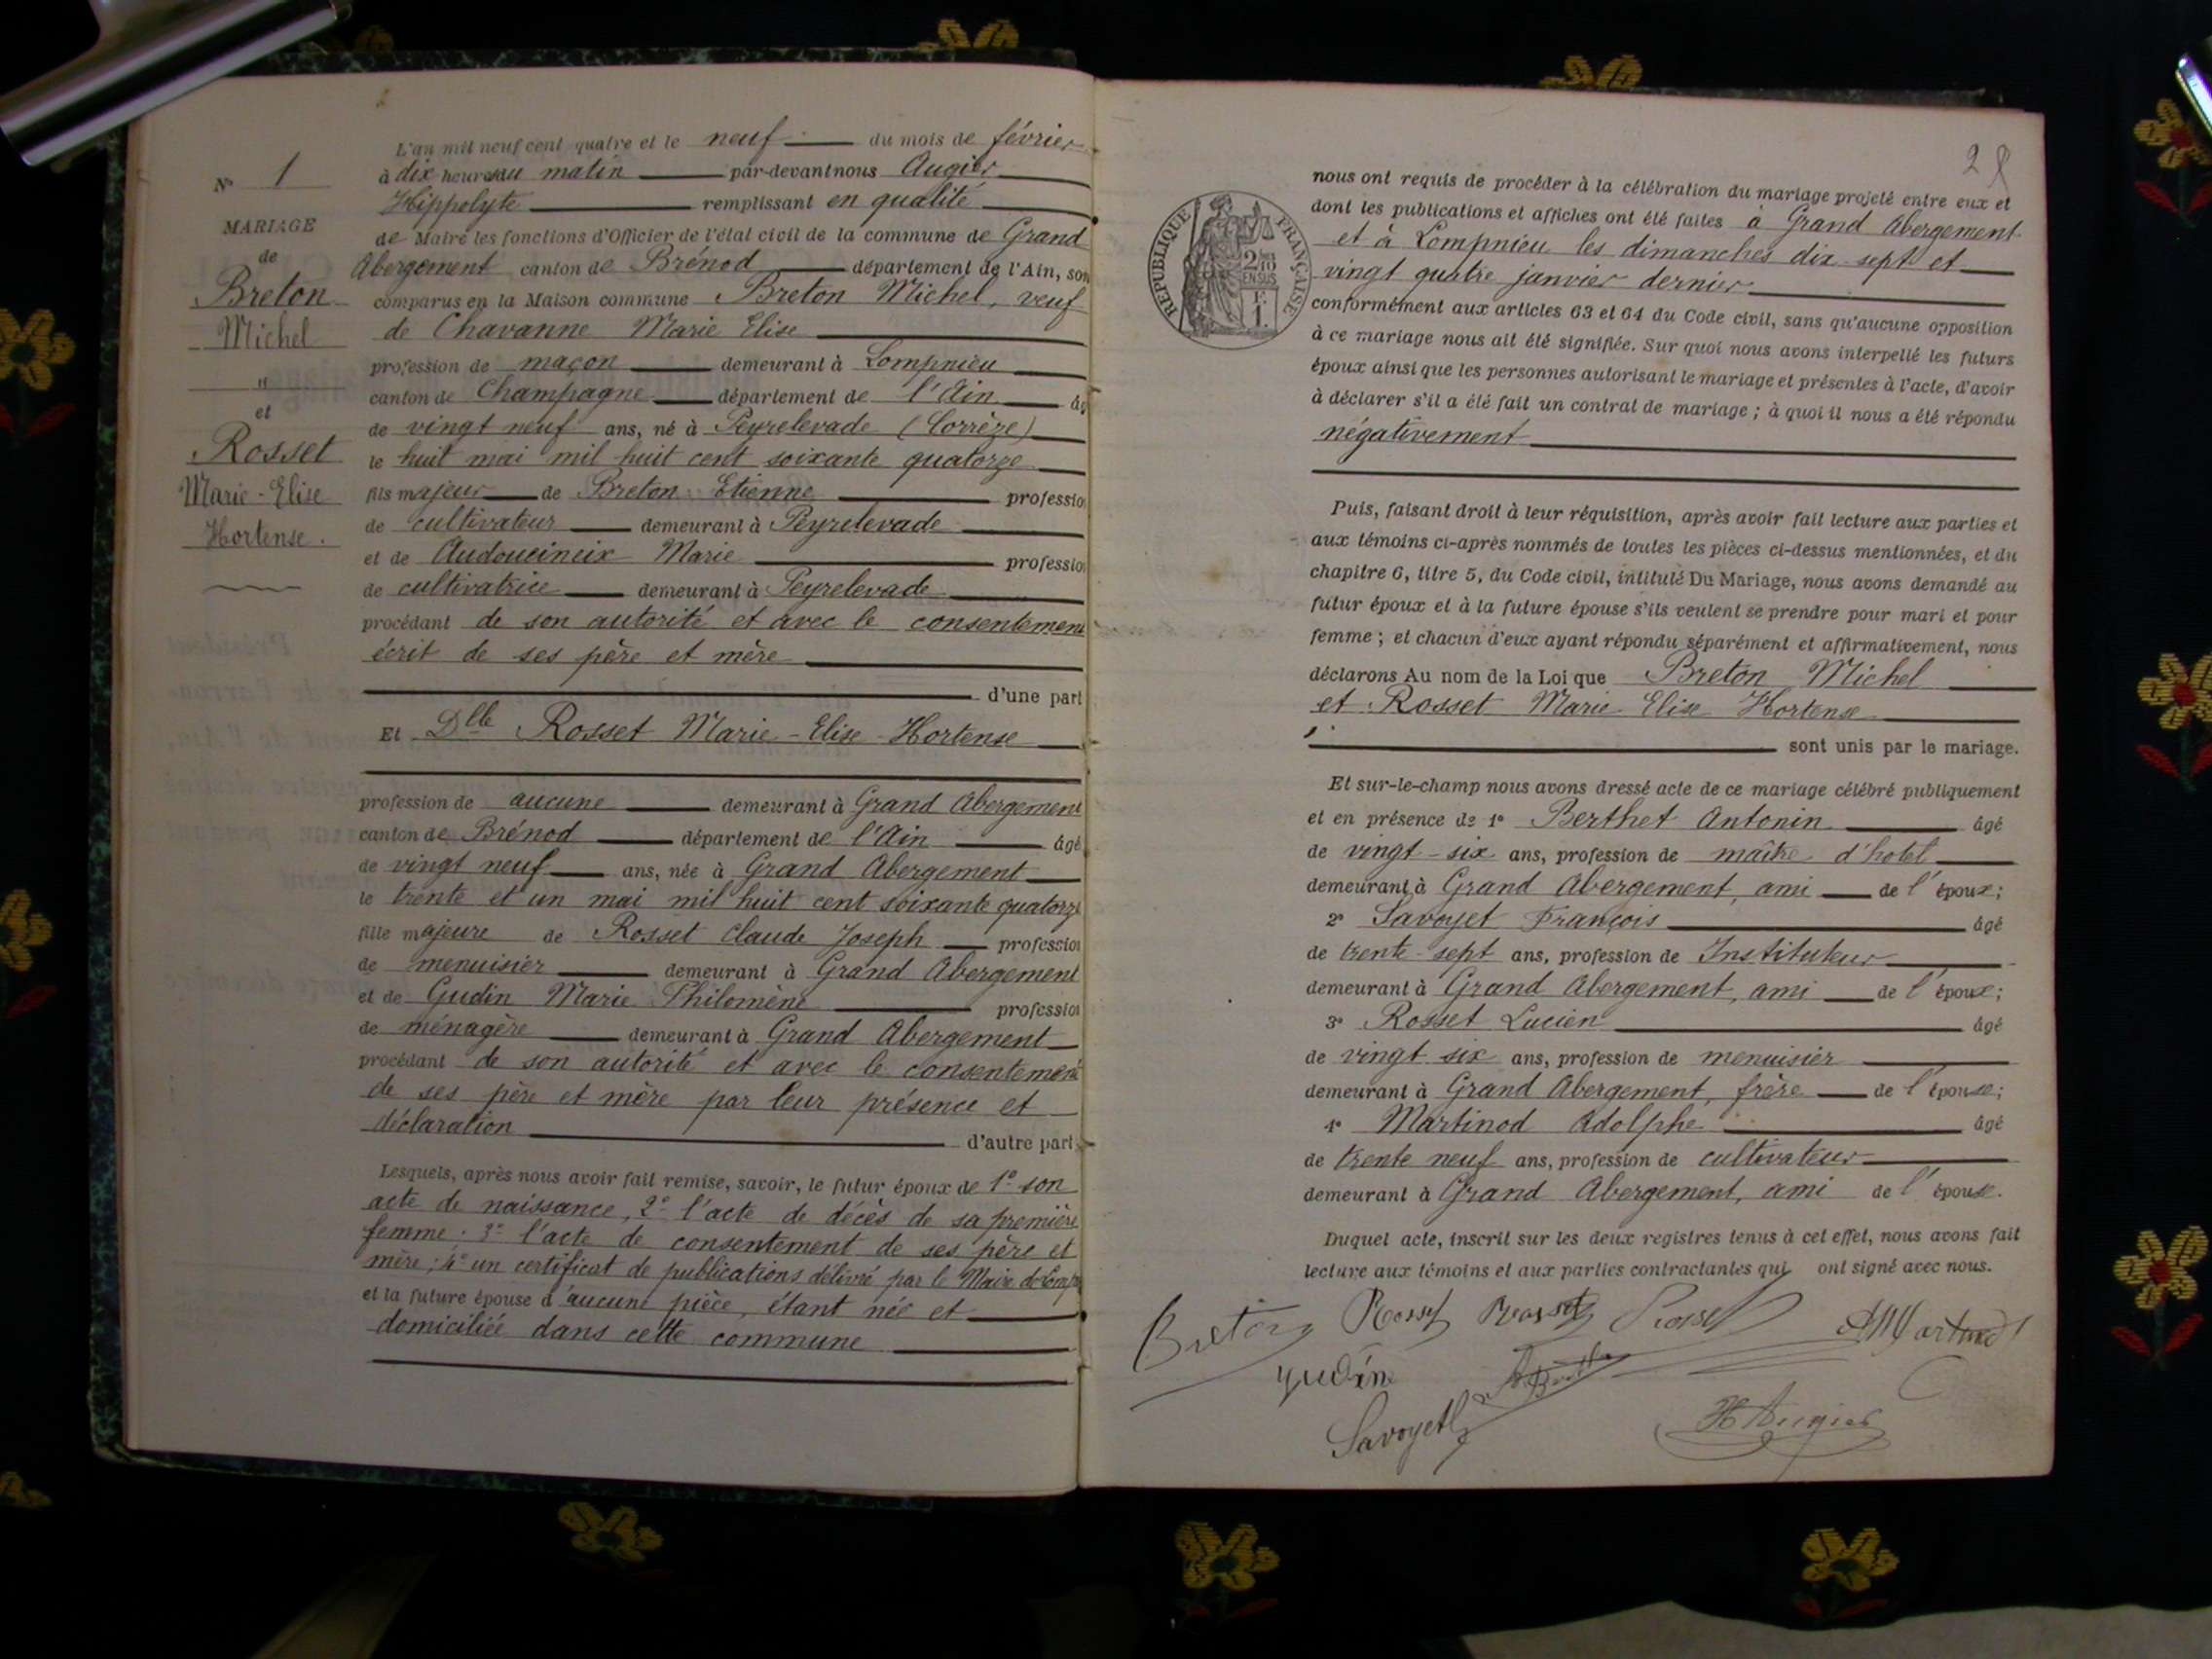 N° 1
MARIAGE
de
Breton
Michel
"
et
Rosset
Marie-Elise
Hortense.
L'an mil neuf cent quatre et le neuf du mois de février
à dix heures du matin par-devant nous Augier
Hippolyte remplissant en qualité
de Maire les fonctions d'Officier de l'état civil de la commune de Grand
Abergement canton de Brénod département de l'Ain, son
comparus en la Maison commune Breton Michel, veuf
de Chavanne Marie Elise
profession de maçon demeurant à Lompnieu
canton de Champagne département de l'Ain âg
de vingt neuf ans, né à Peyrelevade (Corrèze)
le huit mai mil huit cent soixante quatorze
fils majeur de Breton Etienne professio
de cultivateur demeurant à Peyrelevade
et de Audoucineix Marie professio
de cultivatrice demeurant à Peyrelevade
procédant de son autorité et avec le consentement
écrit de ses père et mère
d'une part
Et Dlle Rosset Marie-Elise-Hortense
profession de aucune demeurant à Grand Abergement
canton de Brénod département de l'Ain âgé
de vingt neuf ans, née à Grand Abergement
le trente et un mai mil huit cent soixante quatorze
fille majeure de Rosset Claude Joseph profession
de menuisier demeurant à Grand Abergement
et de Gudin Marie Philomène profession
de ménagère demeurant à Grand Abergement
procédant de son autorité et avec le consentement
de ses père et mère par leur présence et
déclaration d'autre part
Lesquels, après nous avoir fait remise, savoir, le futur époux de 1° son
acte de naissance, 2° l'acte de décès de sa première
femme. 3° l'acte de consentement de ses père et
mère; 4° un certificat de publications délivré par le Maire de
et la future épouse d'aucune pièce, étant née et
domiciliée dans cette commune
28
RÉPUBLIQUE FRANÇAISE
2/10
EN SUS
F.
1.
nous ont requis de procéder à la célébration du mariage projeté entre eux et
dont les publications et affiches ont été faites à Grand Abergement
et à Lompnieu les dimanches dix sept et
vingt quatre janvier dernier
conformément aux articles 63 et 64 du Code civil, sans qu'aucune opposition
à ce mariage nous ait été signifiée. Sur quoi nous avons interpellé les futurs
époux ainsi que les personnes autorisant le mariage et présentes à l'acte, d'avoir
à déclarer s'il a été fait un contrat de mariage; à quoi il nous a été répondu
négativement
Puis, faisant droit à leur réquisition, après avoir fait lecture aux parties et
aux témoins ci-après nommés de toutes les pièces ci-dessus mentionnées, et du
chapitre 6, titre 5, du Code civil, intitulé Du Mariage, nous avons demandé au
futur époux et à la future épouse s'ils veulent se prendre pour mari et pour
femme; et chacun d'eux ayant répondu séparément et affirmativement, nous
déclarons Au nom de la Loi que Breton Michel
et Rosset Marie Elise Hortense
sont unis par le mariage.
Et sur-le-champ nous avons dressé acte de ce mariage célébré publiquement
et en présence de 1° Berthet Antonin âgé
de vingt-six ans, profession de maître d'hotel
demeurant à Grand Abergement, ami de l'époux;
2° Savoyet François âgé
de trente-sept ans, profession de Instituteur
demeurant à Grand Abergement, ami de l'époux;
3° Rosset Lucien âgé
de vingt six ans, profession de menuisier
demeurant à Grand Abergement, frère de l'épouse;
4° Martinod Adolphe âgé
de trente neuf ans, profession de cultivateur
demeurant à Grand Abergement, ami de l'épouse.
Duquel acte, inscrit sur les deux registres tenus à cet effet, nous avons fait
lecture aux témoins et aux parties contractantes qui ont signé avec nous.
Breton Rosset Rosset Rosset AMartinod
gudin
Savoyet HAugier